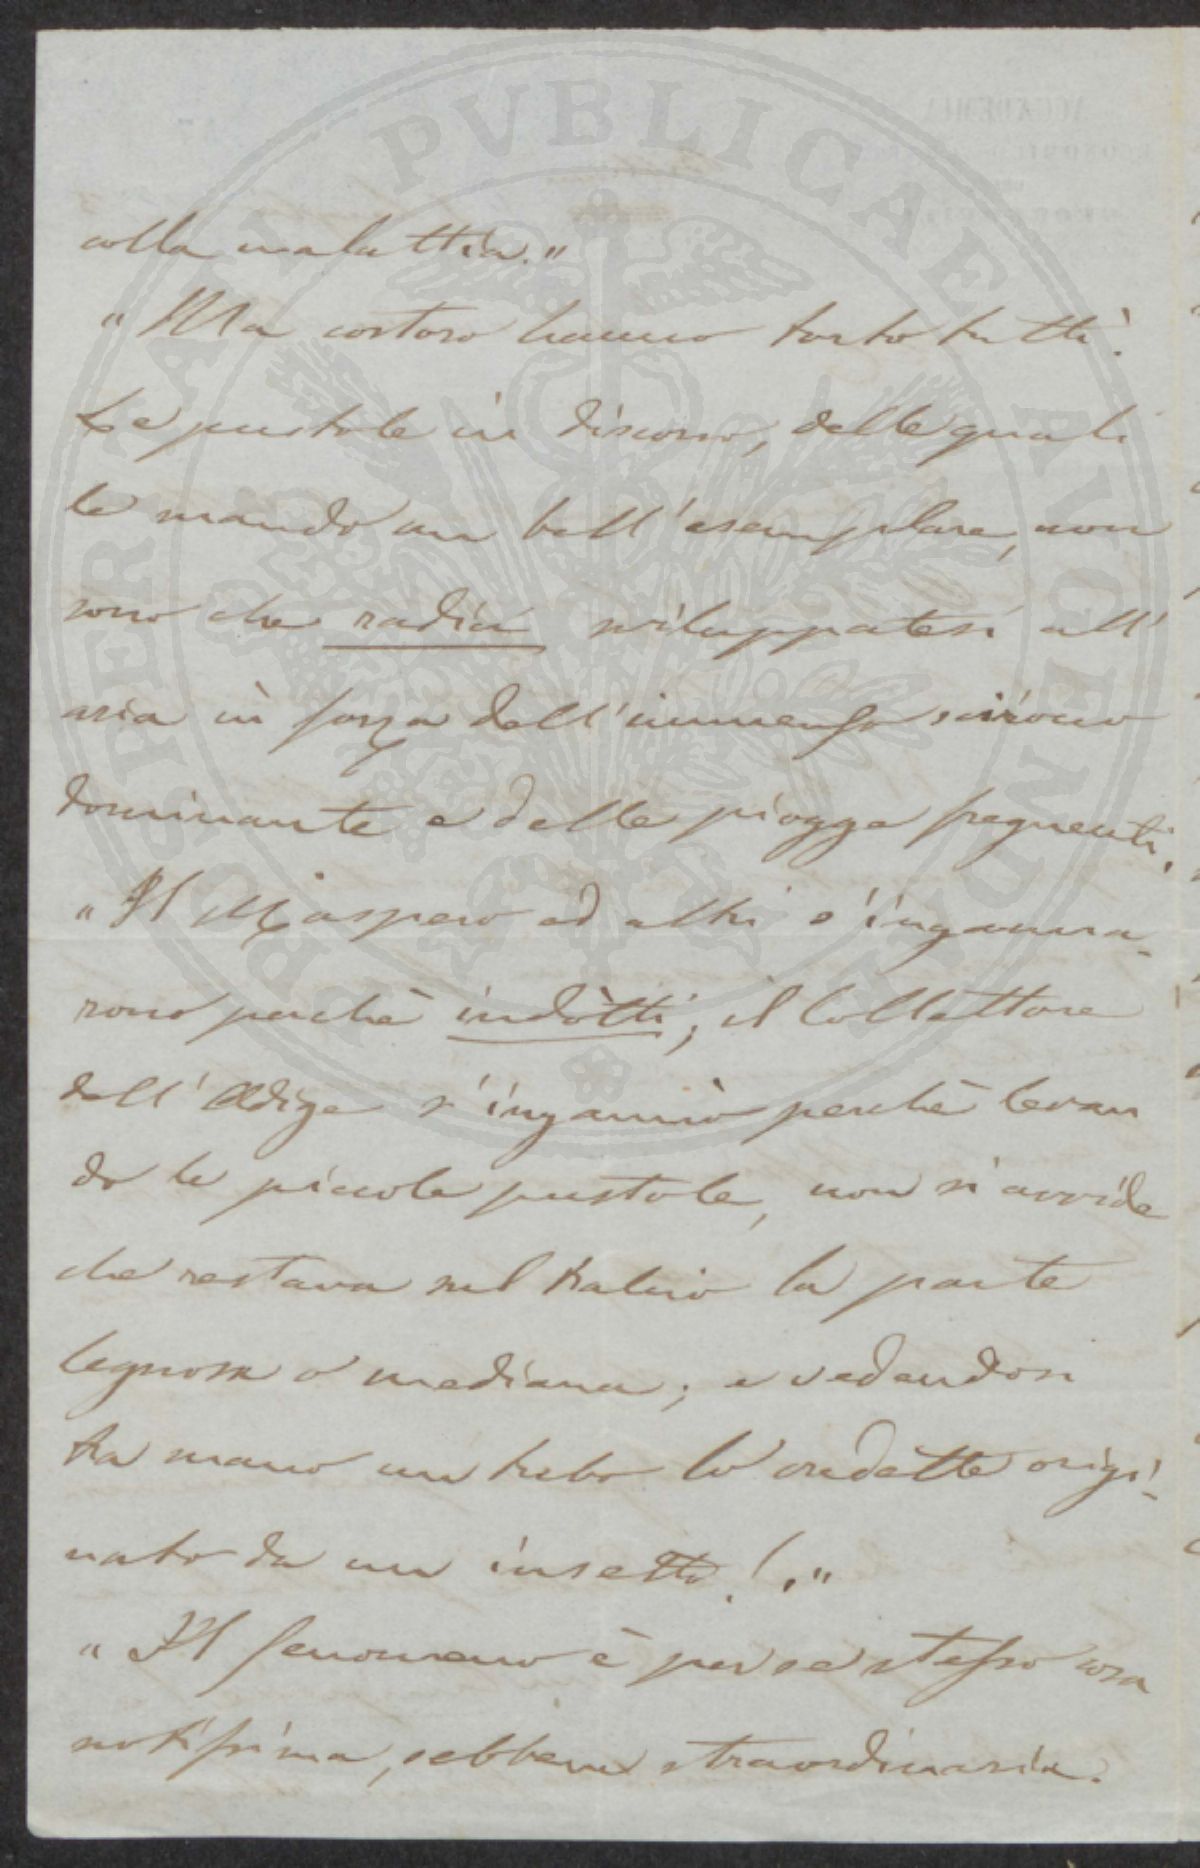 colla malattia."
"Ma costoro hanno torto tutti.
Le pustole in discorso, delle quali
le mando un bell'esemplare, non
sono che radici sviluppatesi all'
aria in forza dell'immenso scirocco
dominante e delle piogge frequenti.
"Il Maspero ed altri s'inganna-
rono perchè indòtti; il Collettore
dell'Adige s'ingannò perchè levan
do le piccole pustole, non si avvide
che restava sul tralcio la parte
legnosa o mediana; e vedendosi
tra mano un tubo lo credette origi-
nato da un insetto!."
"Il fenomeno è per se stesso cosa
notissima, sebbene straordinaria.
PROSPERITATI PVBLICAE AVGENDAE
ACCADEMIA